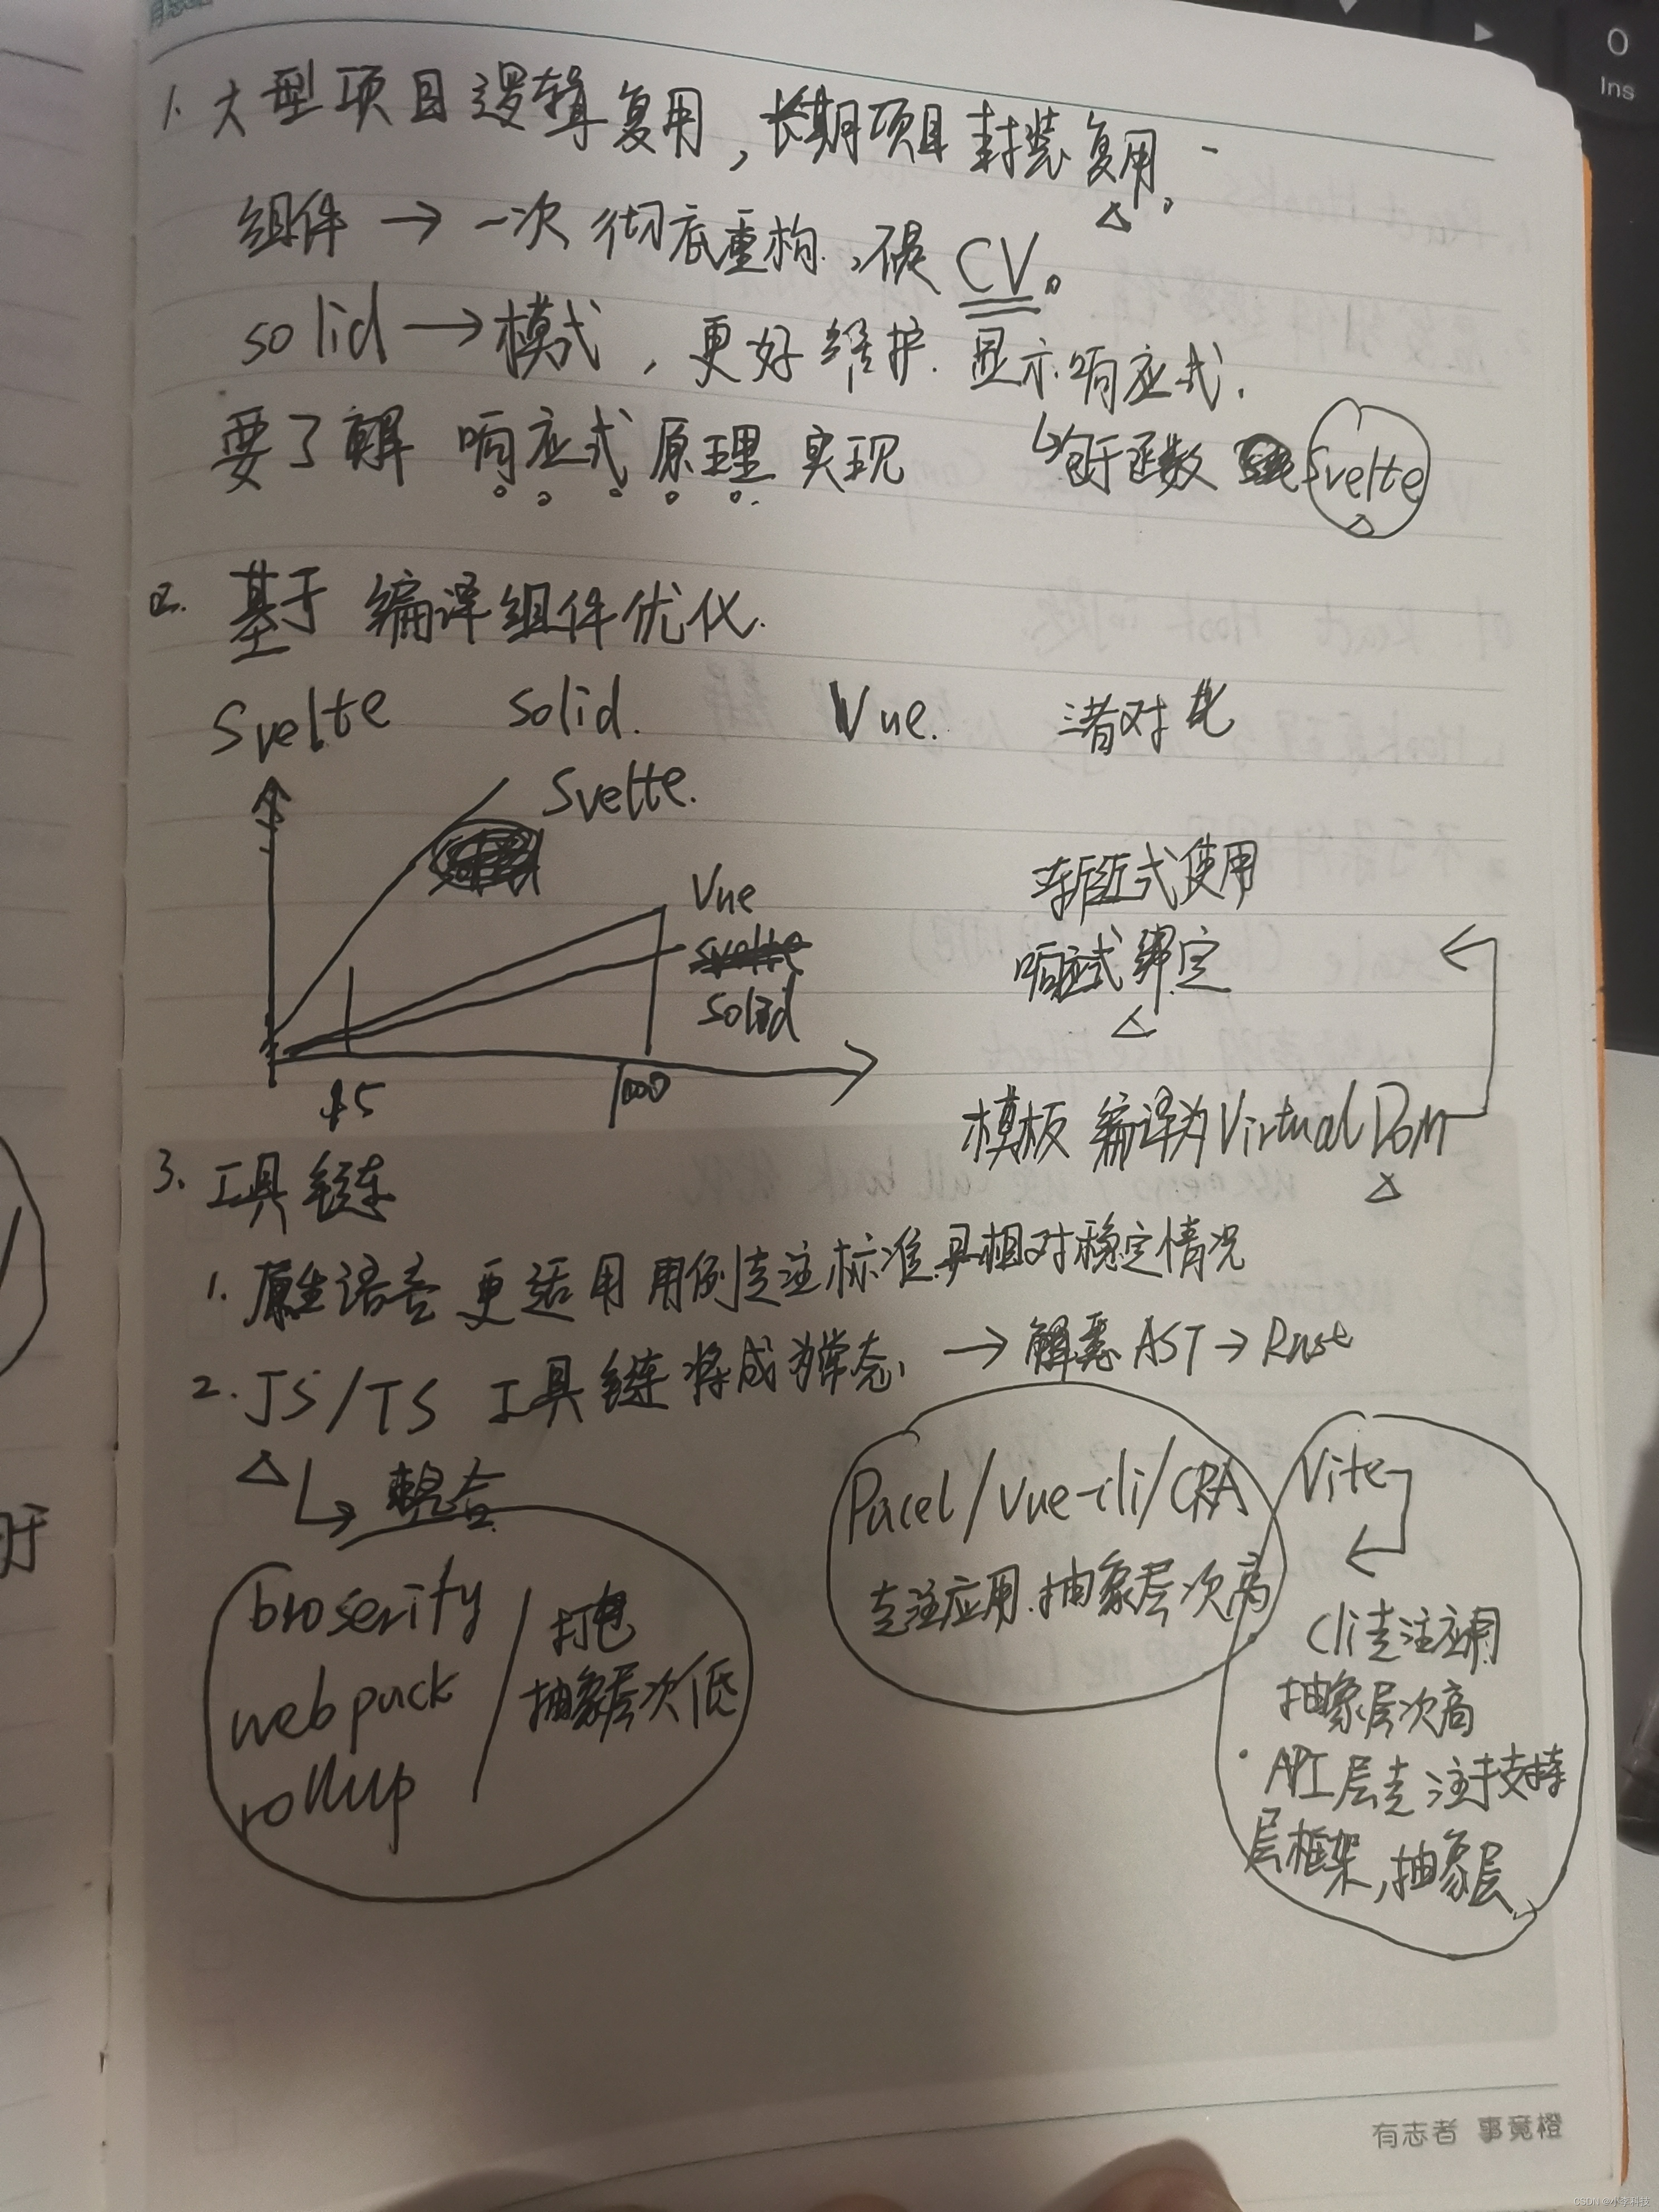 1. 大型项目逻辑复用，长期项目封装复用。
组件 → 一次彻底重构，不是 CV。
solid → 模式，更好维护. 显示响应式.
要了解 响应式原理 实现
函数 Svelte
2. 基于 编译组件优化.
Svelte solid. Vue. 三者对比
Svelte.
Vue
solid
15
100
渐近式使用
响应式绑定
模板 编译为 Virtual Dom
3. 工具链
1. 原生语言 更适用 用例专注标准 具相对稳定情况
2. JS/TS 工具链将成为常态, → AST → Rust
整合
broserify
webpack
rollup
打包
抽象层次低
Pacel/Vue-cli/CRA
专注应用.抽象层次高
Vite
Cli专注应用
抽象层次高
· API层专注于支持
层框架,抽象层
有志者 事竟橙
0
Ins
CSDN @小李科技